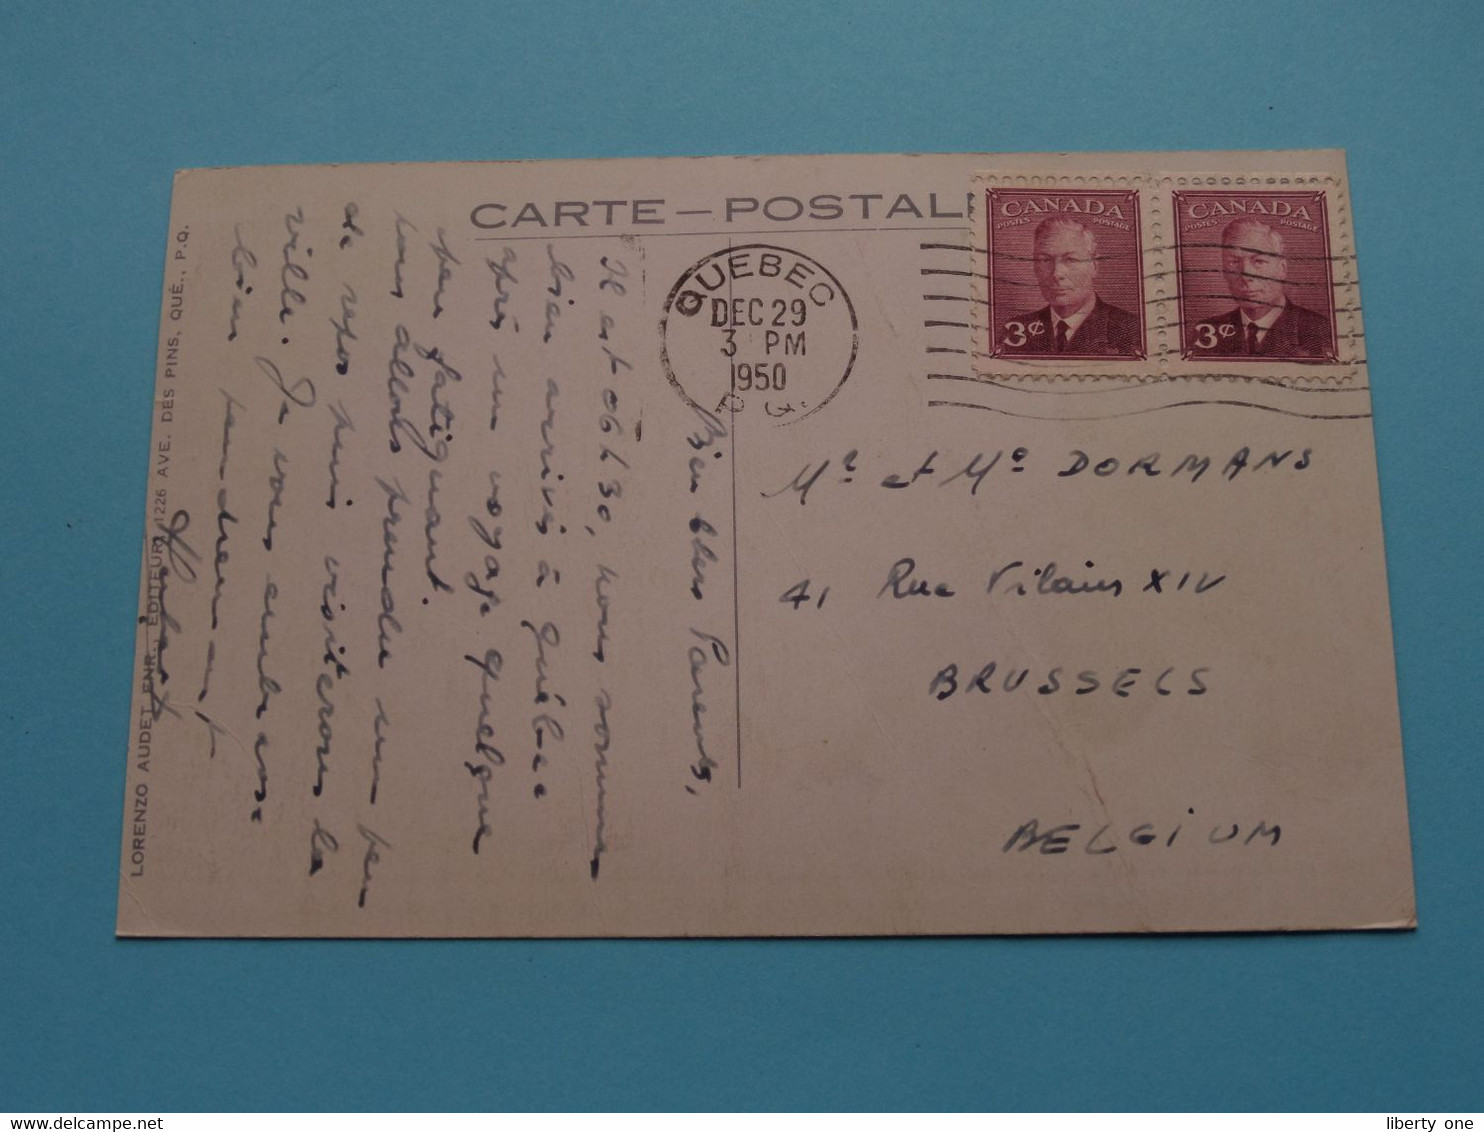 CARTE — POSTALE
LORENZO AUDET ENR., EDITEUR, 1226 AVE. DES PINS, QUÉ., P.Q.
Bien chers Parents,
Il est 06h30, nous sommes
bien arrivés à Québec
après un voyage quelque
peu fatiguant.
Nous allons prendre un peu
de repos puis visiterons la
ville. Je vous embrasse
bien tendrement
QUEBEC
DEC 29
3 PM
1950
P. Q.
CANADA
POSTES POSTAGE
3¢
CANADA
POSTES POSTAGE
3¢
Mr et Me DORMANS
41 Rue Vilain XIV
BRUSSELS
BELGIUM
delcampe.net
liberty one